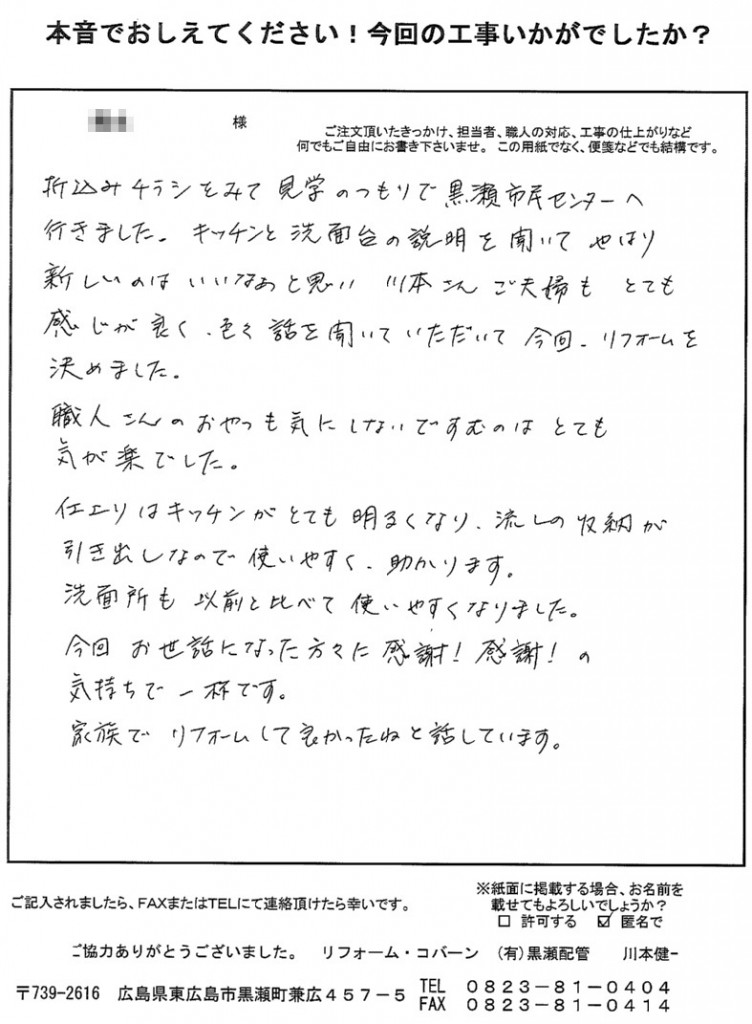 本音でおしえてください！今回の工事いかがでしたか？
様
ご注文頂いたきっかけ、担当者、職人の対応、工事の仕上がりなど
何でもご自由にお書き下さいませ。この用紙でなく、便箋などでも結構です。
折込みチラシをみて 見学のつもりで黒瀬市民センターへ
行きました。キッチンと洗面台の説明を聞いて やはり
新しいのは いいなぁと思い 川本さんご夫婦も とても
感じが良く、色々話を聞いていただいて 今回、リフォームを
決めました。
職人さんのおやつも気にしないですむのは とても
気が楽でした。
仕上りはキッチンがとても明るくなり、流しの収納が
引き出しなので使いやすく、助かります。
洗面所も以前と比べて使いやすくなりました。
今回 お世話になった方々に感謝！感謝！の
気持ちで一杯です。
家族で リフォームして良かったねと話しています。
ご記入されましたら、FAXまたはTELにて連絡頂けたら幸いです。
※紙面に掲載する場合、お名前を
載せてもよろしいでしょうか？
☐ 許可する ☑ 匿名で
ご協力ありがとうございました。 リフォーム・コバーン （有）黒瀬配管 川本健一
〒739-2616 広島県東広島市黒瀬町兼広４５７－５
TEL ０８２３－８１－０４０４
FAX ０８２３－８１－０４１４